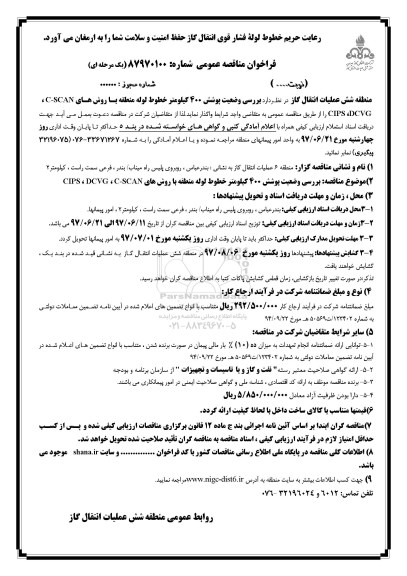 رعایت حریم خطوط لوله فشار قوی انتقال گاز حفظ امنیت و سلامت شما را به ارمغان می آورد.
فراخوان مناقصه عمومی شماره: ۸۷۹۷۰۱۰۰ (یک مرحله ای)
(نوبت....) شماره مجوز: ......
منطقه شش عملیات انتقال گاز در نظر دارد بررسی وضعیت پوشش ۴۰۰ کیلومتر خطوط لوله منطقه بـا روش هـای C-SCAN ،
DCVG و CIPS را از طریق مناقصه عمومی به متقاضی واجد شرایط واگذار نماید. لذا از متقاضیان شرکت در مناقصه دعوت بعمل مـی آیـد جهـت
دریافت اسناد استعلام ارزیابی کیفی همراه با اعلام آمادگی کتبی و گواهی هـای خواسـته شـده در بنـد ۵ حداکثر تـا پایـان وقـت اداری روز
چهارشنبه مورخ ۹۷/۰۶/۲۱ به واحد امور پیمانهای منطقه مراجعـه نمـوده و یـا اعـلام آمـادگی را بـه شمـاره ۳۳۶۷۱۳۶۷-۰۷۶ (۳۲۱۹۶۰۷۵
پیگیری) نمابر نمائید.
۱) نام و نشانی مناقصه گزار: منطقه ۶ عملیات انتقال گاز به نشانی : بندرعباس ، روبروی پلیس راه میناب/ بندر ، فرعی سمت راست ، کیلومتر۲
۲)موضوع مناقصه: بررسی وضعیت پوشش ۴۰۰ کیلومتر خطوط لوله منطقه با روش های C-SCAN، DCVG و CIPS
۳) محل ، زمان و مهلت دریافت اسناد و تحویل پیشنهادها :
۳-۱محل دریافت اسناد ارزیابی کیفی: بندرعباس ، روبروی پلیس راه میناب/ بندر ، فرعی سمت راست ، کیلومتر۲ ، امور پیمانها.
۳-۲زمان و مهلت دریافت اسناد ارزیابی کیفی: توزیع اسناد ارزیابی کیفی بین مناقصه گران از تاریخ ۹۷/۰۶/۱۱ الی ۹۷/۰۶/۲۱ می باشد.
۳-۳ مهلت تحویل مدارک ارزیابی کیفی: حداکثر باید تا پایان وقت اداری روز یکشنبه مورخ ۹۷/۰۷/۰۱ به امور پیمانها تحویل گردد.
۳-۴ گشایش پیشنهادها: پیشنهادها روز یکشنبه مورخ ۹۷/۰۸/۰۶ در منطقه شش عملیات انتقـال گـاز بـه نشـانی قیـد شـده در بنـد یـک ،
گشایش خواهند یافت.
تذکر:در صورت تغییر تاریخ بازگشایی، زمان قطعی گشایش پاکات کتبا به اطلاع مناقصه گران خواهد رسید.
۴) نوع و مبلغ ضمانتنامه شرکت در فرآیند ارجاع کار:
مبلغ ضمانتنامه شرکت در فرآیند ارجاع کار ۲۹۲/۵۰۰/۰۰۰ ریال متناسب با انواع تضمین های اعلام شده در آیین نامه تضـمین معـاملات دولتـی
به شماره ۱۲۳۴۰۲/ت۵۰۶۵۹ هـ مورخ ۹۴/۰۹/۲۲
۵) سایر شرایط متقاضیان شرکت در مناقصه:
۵-۱-توانایی ارائه ضمانتنامه انجام تعهدات به میزان ده (۱۰) % بار مالی پیمان در صورت برنده شدن ، متناسب با انواع تضمین هـای اعـلام شـده در
آیین نامه تضمین معاملات دولتی به شماره ۱۲۳۴۰۲/ت۵۰۶۵۹ هـ مورخ ۹۴/۰۹/۲۲
۵-۲- ارائه گواهی صلاحیت معتبر رسته" نفت و گاز و یا تاسیسات و تجهیزات " از سازمان برنامه و بودجه
۵-۳- برنده مناقصه موظف به ارائه کد اقتصادی ، شناسه ملی و گواهی صلاحیت ایمنی در امور پیمانکاری می باشند.
۵-۴- دارا بودن ظرفیت آزاد معادل ۵/۸۵۰/۰۰۰/۰۰۰ ریال
۶)قیمتها متناسب با کالای ساخت داخل با لحاظ کیفیت ارائه گردد.
۷)مناقصه گران ابتدا بر اساس آئین نامه اجرائی بند ج ماده ۱۲ قانون برگزاری مناقصات ارزیابی کیفی شده و پـس از کسـب
حداقل امتیاز لازم در فرآیند ارزیابی کیفی ، اسناد مناقصه به مناقصه گران تأئید صلاحیت شده تحویل خواهد شد.
۸) اطلاعات کلی مناقصه در پایگاه ملی اطلاع رسانی مناقصات کشور با کد فراخوان ............... و سایت shana.ir موجود می
باشد.
۹) جهت کسب اطلاعات بیشتر به سایت منطقه به آدرس www.nigc-dist6.ir مراجعه نمایید.
تلفن تماس: ۶۰۱۲ و ۳۲۱۹۶۰۲۴ -۰۷۶
روابط عمومی منطقه شش عملیات انتقال گاز